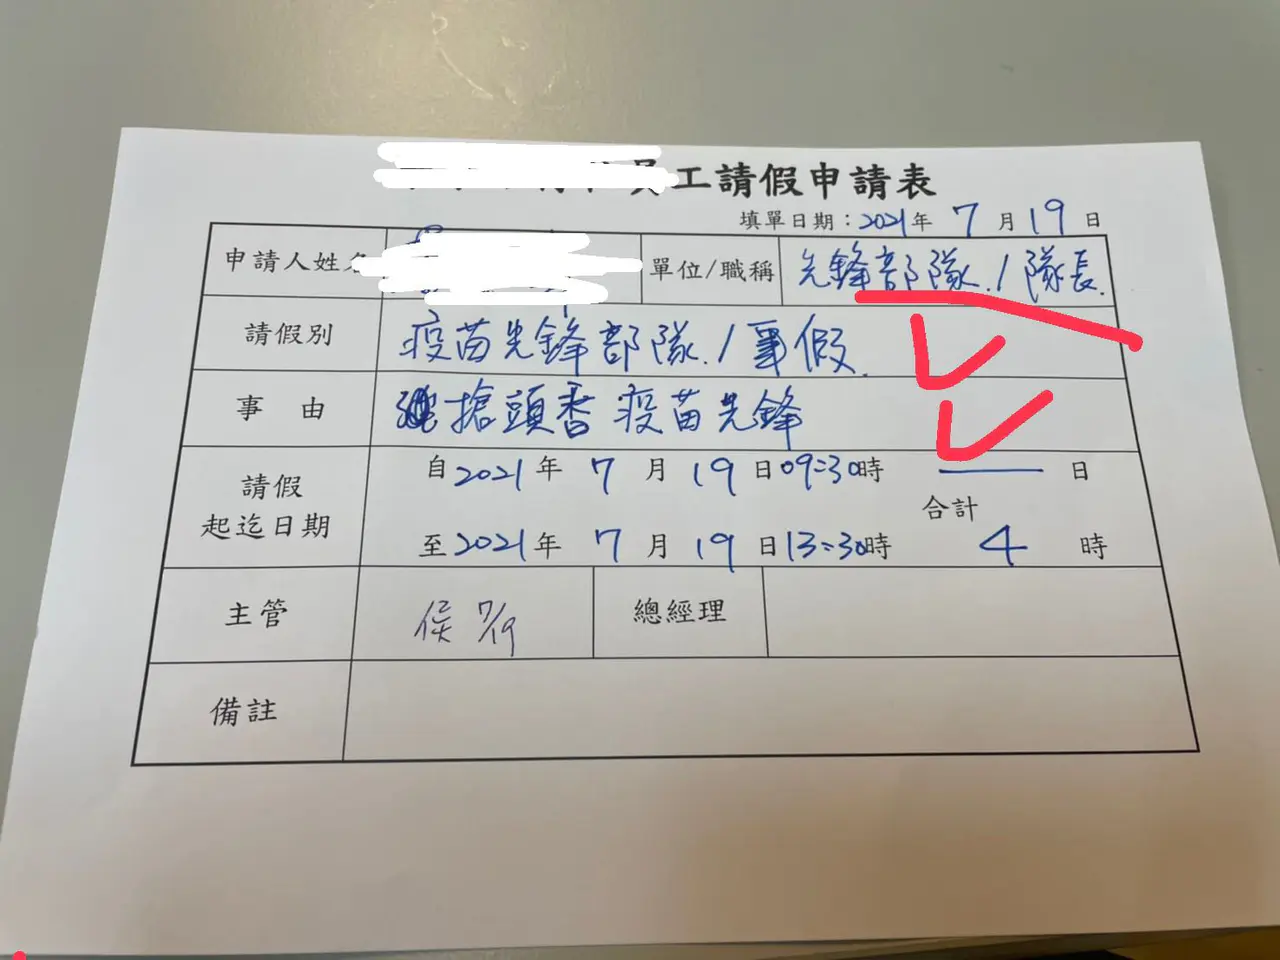 員工請假申請表
填單日期：2021年 7 月 19 日
申請人姓名 單位/職稱 先鋒部隊/隊長.
請假別 疫苗先鋒部隊/事假.
事 由 搶頭香疫苗先鋒
自2021年 7 月 19日09:30時 — 日
請假 合計
起迄日期
至2021年 7 月 19日13:30時 4 時
主管 侯 7/19 總經理
備註